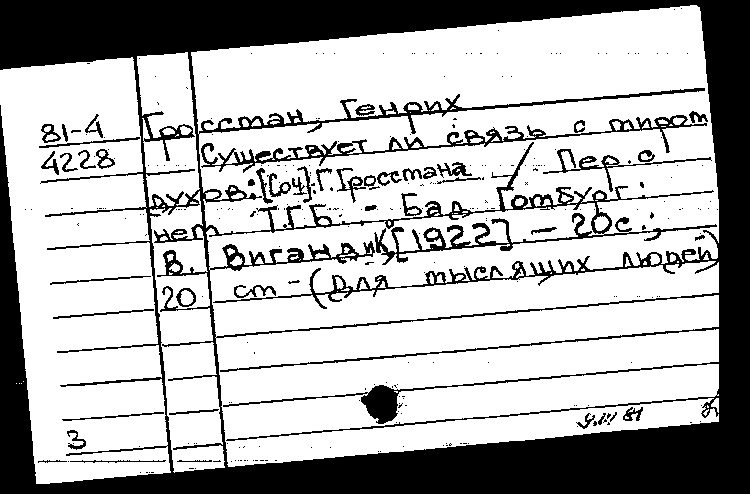 81-4 Гросстан, Генрих
4228 Существует ли связь с тиром
духов: [Соч]: Г. Гросстана / Пер. с
нет. Т.Г.Б. - Бад Готбург:
В. Вигандик°, [1922]. - 20 с.;
20 ст - (Для тыслящих людей)
3